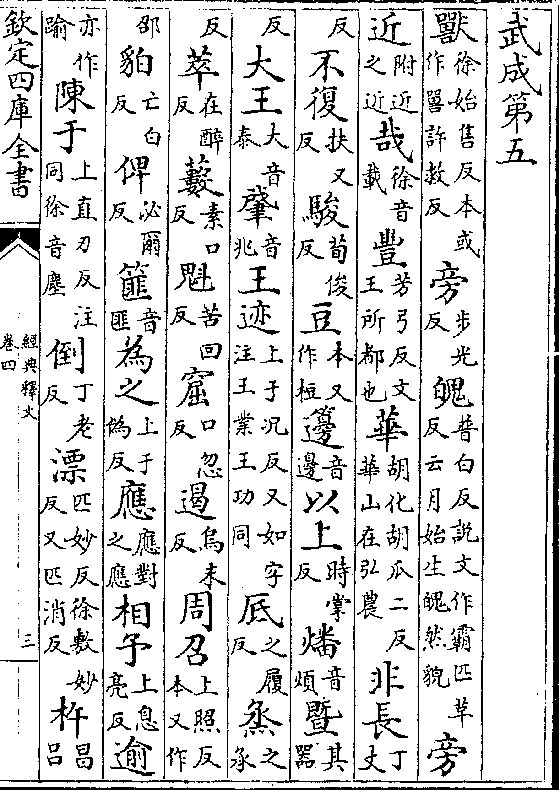 武成第五
獸徐始售反本或作嘼許救反旁步光反魄普白反説文作霸匹草反云月始生魄然貌旁
近附近之近哉徐音載豐芳弓反文王所都也華胡化胡瓜二反華山在弘農非長丁丈
反不復扶又反駿荀俊反豆本又作梪籩音邊以上時掌反燔音煩暨其器
反大王大音泰肇音兆王迹上于况反又如字注王業王功同厎之履反烝之承
反萃在醉反藪素口反魁苦回反窟口忽反遏烏末反周召上照反本又作
邵貊亡白反俾必爾反篚音匪為之上于偽反應應對之應相予上息亮反逾
亦作踰陳于上直刃反注同徐音塵倒丁老反漂匹妙反徐敷妙反又匹消反杵昌呂
欽定四庫全書
經典釋文
卷四
三